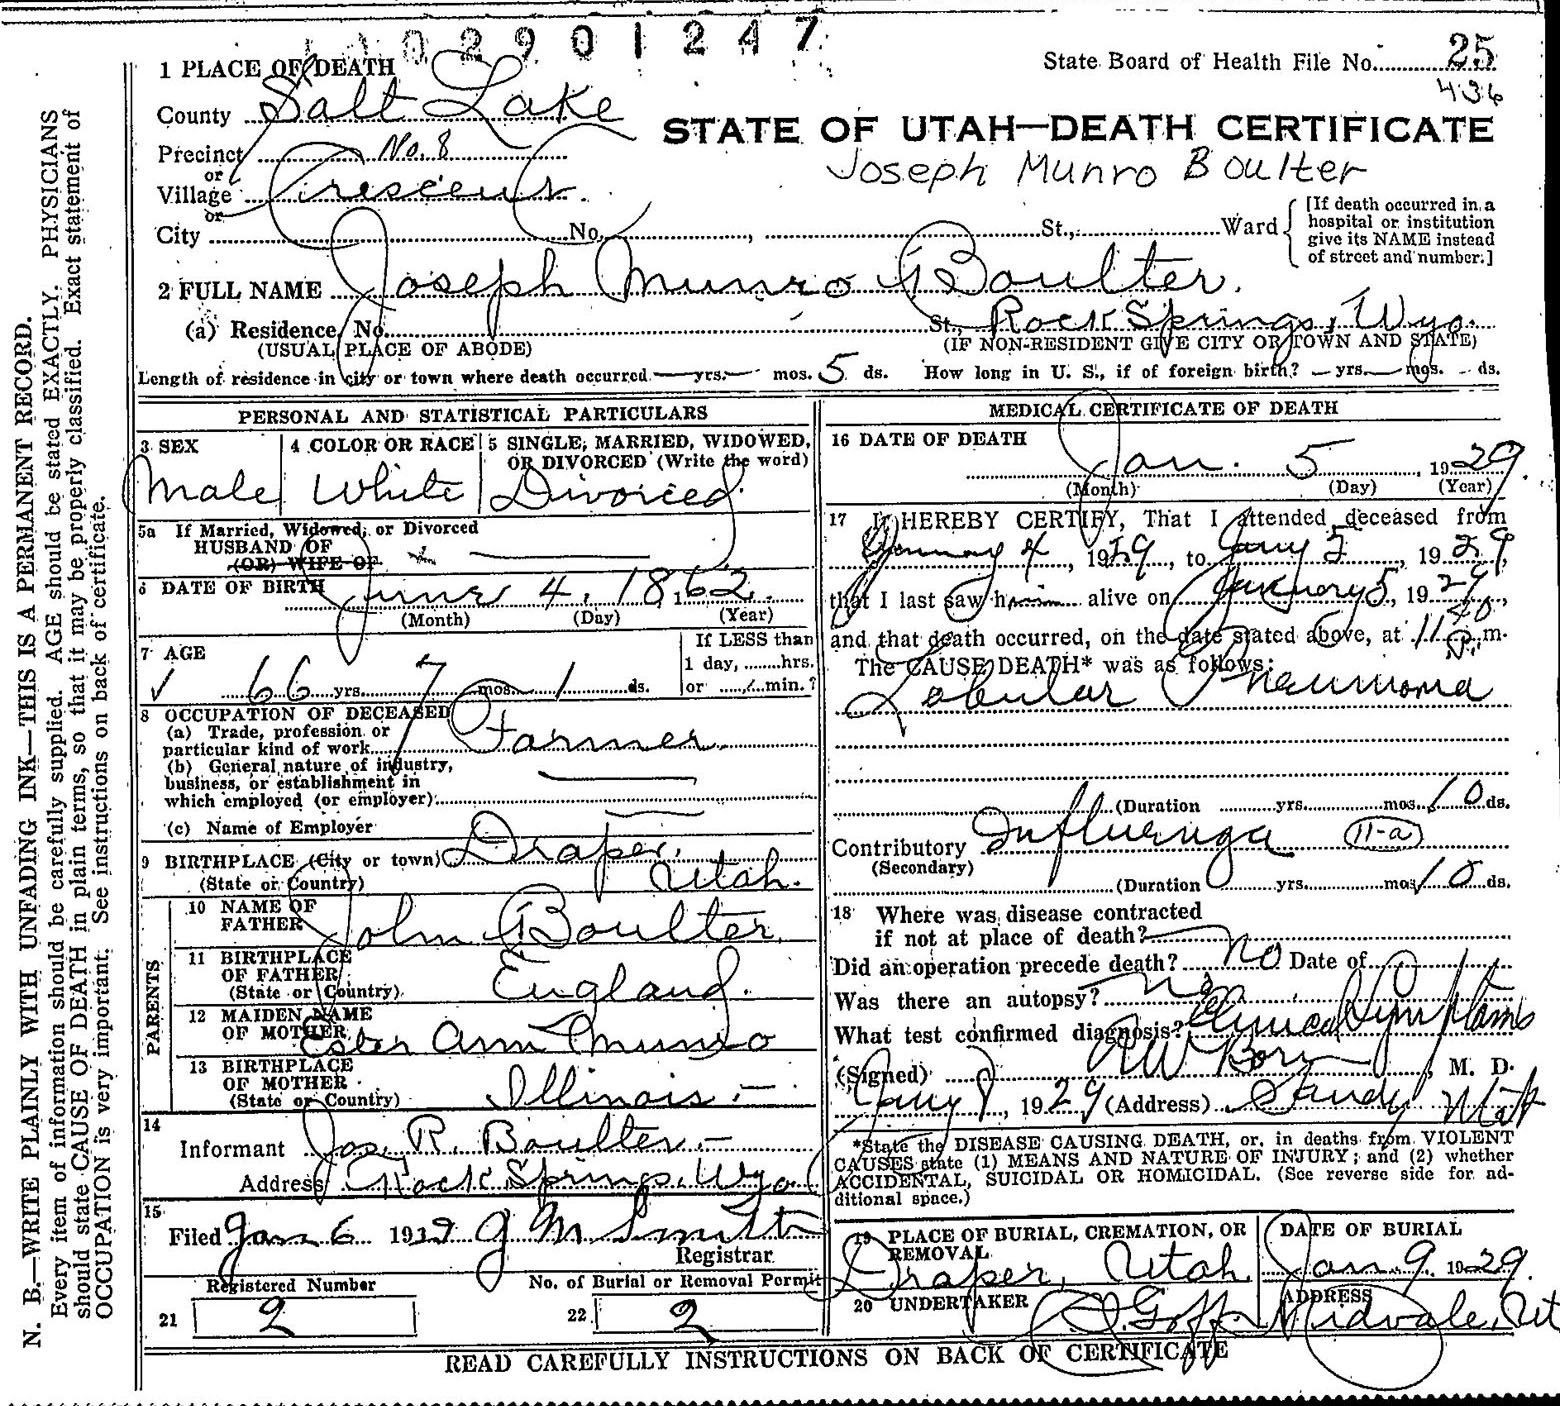 1 1 0 2 9 0 1 2 4 7
State Board of Health File No. 25
436
1 PLACE OF DEATH
County Salt Lake
STATE OF UTAH—DEATH CERTIFICATE
Precinct No. 8
Joseph Munro Boulter
or
Village Crescent
or
City No. , St., Ward
[If death occurred in a hospital or institution give its NAME instead of street and number.]
2 FULL NAME Joseph Munro Boulter.
(a) Residence, No. St., Rock Springs, Wyo.
(USUAL PLACE OF ABODE) (IF NON-RESIDENT GIVE CITY OR TOWN AND STATE)
Length of residence in city or town where death occurred — yrs. — mos. 5 ds. How long in U. S., if of foreign birth? — yrs. — mos. - ds.
PERSONAL AND STATISTICAL PARTICULARS
3 SEX
Male
4 COLOR OR RACE
White
5 SINGLE, MARRIED, WIDOWED,
OR DIVORCED (Write the word)
Divorced
5a If Married, Widowed, or Divorced
HUSBAND OF
(OR) WIFE OF
6 DATE OF BIRTH June 4, 1862.
(Month) (Day) (Year)
7 AGE
66 yrs. 7 mos. 1 ds.
If LESS than
1 day, ........hrs.
or ........min.?
8 OCCUPATION OF DECEASED
(a) Trade, profession or
particular kind of work Farmer.
(b) General nature of industry,
business, or establishment in
which employed (or employer)
(c) Name of Employer
9 BIRTHPLACE (City or town) Draper,
(State or Country) Utah.
PARENTS
10 NAME OF
FATHER John Boulter
11 BIRTHPLACE
OF FATHER England.
(State or Country)
12 MAIDEN NAME
OF MOTHER Ester Ann Munro
13 BIRTHPLACE
OF MOTHER
(State or Country) Illinois.—
14
Informant Jos. R. Boulter.—
Address Rock Springs, Wyo.
15
Filed Jan 6 1929 J M Smith
Registrar
Registered Number No. of Burial or Removal Permit
21 2 22 2
MEDICAL CERTIFICATE OF DEATH
16 DATE OF DEATH
Jan. 5, 1929
(Month) (Day) (Year)
17 I HEREBY CERTIFY, That I attended deceased from
January 4, 1929, to Jany 5, 1929,
that I last saw him alive on January 5, 1929,
and that death occurred, on the date stated above, at 11 40 P. m.
The CAUSE DEATH* was as follows:
Lobular Pneumonia
(Duration yrs. mos. 10 ds.
Contributory Influenza 11-a
(Secondary)
(Duration yrs. mos. 10 ds.
18 Where was disease contracted
if not at place of death?
Did an operation precede death? no Date of
Was there an autopsy? no
What test confirmed diagnosis? Clinical Symptoms
(Signed) , M. D.
Jany 8, 1929 (Address) Sandy Utah
*State the DISEASE CAUSING DEATH, or, in deaths from VIOLENT
CAUSES state (1) MEANS AND NATURE OF INJURY; and (2) whether
ACCIDENTAL, SUICIDAL OR HOMICIDAL. (See reverse side for ad-
ditional space.)
19 PLACE OF BURIAL, CREMATION, OR
REMOVAL
Draper, Utah
DATE OF BURIAL
Jan 9, 1929.
20 UNDERTAKER
Goff.
ADDRESS
Midvale, Ut
READ CAREFULLY INSTRUCTIONS ON BACK OF CERTIFICATE
N. B.—WRITE PLAINLY WITH UNFADING INK—THIS IS A PERMANENT RECORD.
Every item of information should be carefully supplied. AGE should be stated EXACTLY. PHYSICIANS
should state CAUSE OF DEATH in plain terms, so that it may be properly classified. Exact statement of
OCCUPATION is very important. See instructions on back of certificate.